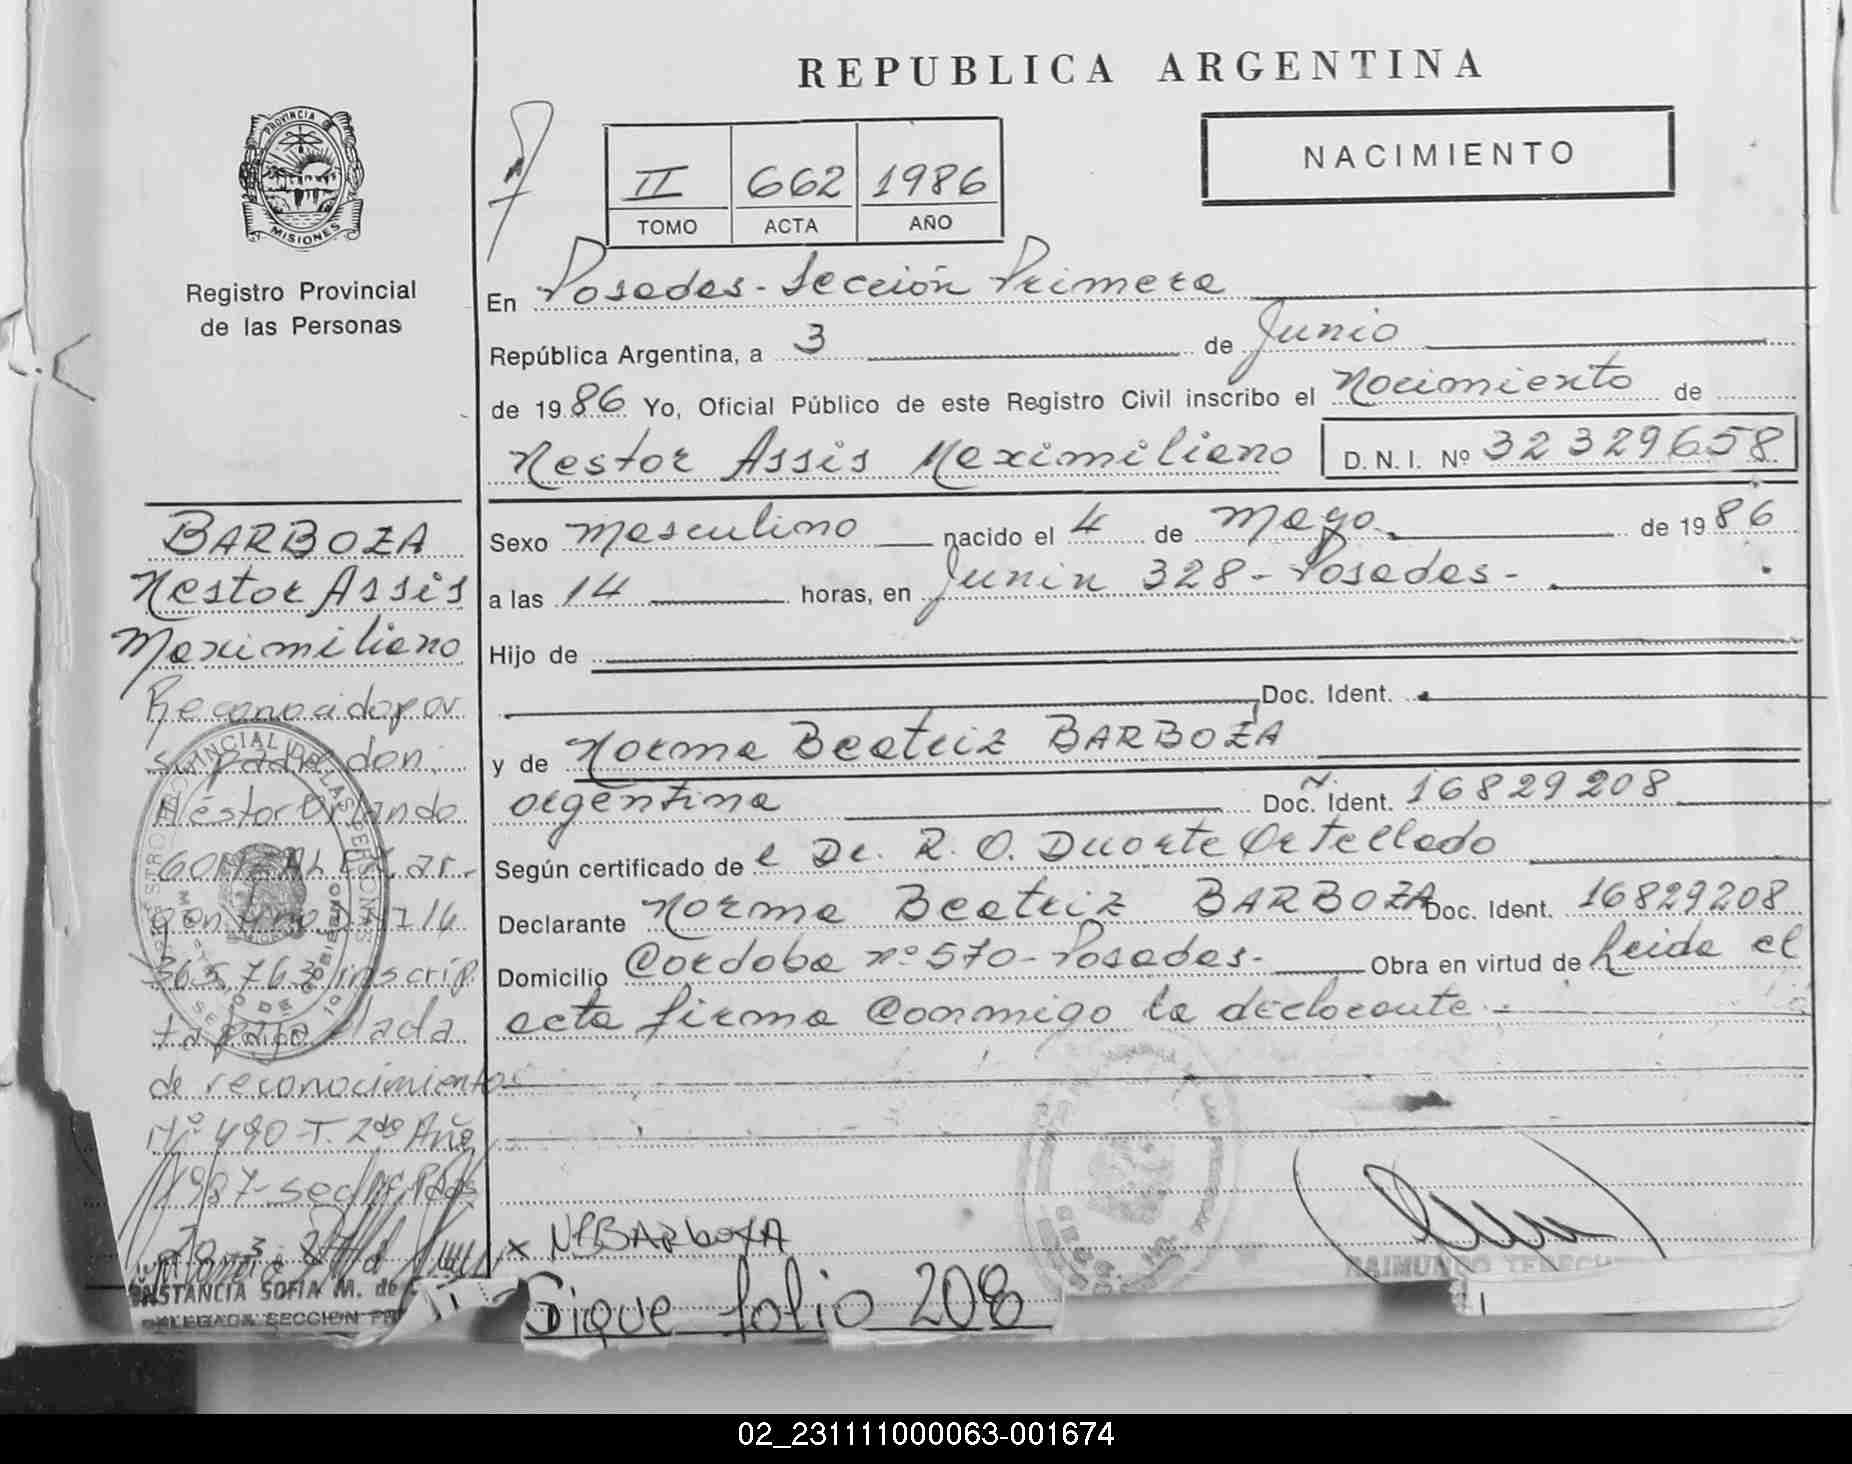 REPUBLICA ARGENTINA
NACIMIENTO
II 662 1986
TOMO ACTA AÑO
PROVINCIA DE
MISIONES
Registro Provincial
de las Personas
En Posadas - Sección Primera
República Argentina, a 3 de Junio
de 1986 Yo, Oficial Público de este Registro Civil inscribo el Nacimiento de
Nestor Assis Maximiliano D.N.I. Nº 32329658
Sexo masculino nacido el 4 de Mayo de 1986
a las 14 horas, en Junin 328 - Posadas -
Hijo de
Doc. Ident.
y de Norma Beatriz BARBOZA
argentina Doc. Ident. 16829208
Según certificado de e Dr. R. O. Duarte Ortellado
Declarante Norma Beatriz BARBOZA Doc. Ident. 16829208
Domicilio Cordoba nº 570 - Posadas - Obra en virtud de Leida el
acta firma conmigo la declarante -
x NBBARboZA
Sigue folio 208
RAIMUNDO
BARBOZA
Nestor Assis
Maximiliano
Reconocido por
su padre don:
Néstor Orlando
GONZALEZ, ar-
gentino,
365.763 inscrip
ta par elada
de reconocimiento
Nº 490 - T. 2do Año
1987 - secc
20 - 3 - 87
CONSTANCIA SOFIA M. de
DELEGADA SECCION
02_231111000063-001674